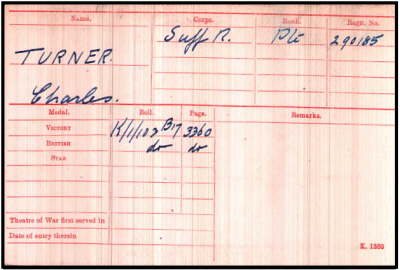 Name. Corps. Rank. Regtl. No.
TURNER. Suff R. Pte 290185
Charles.
Medal. Roll. Page. Remarks.
VICTORY K/1/103 B17 3360
BRITISH do do
STAR
Theatre of War first served in
Date of entry therein
K. 1380